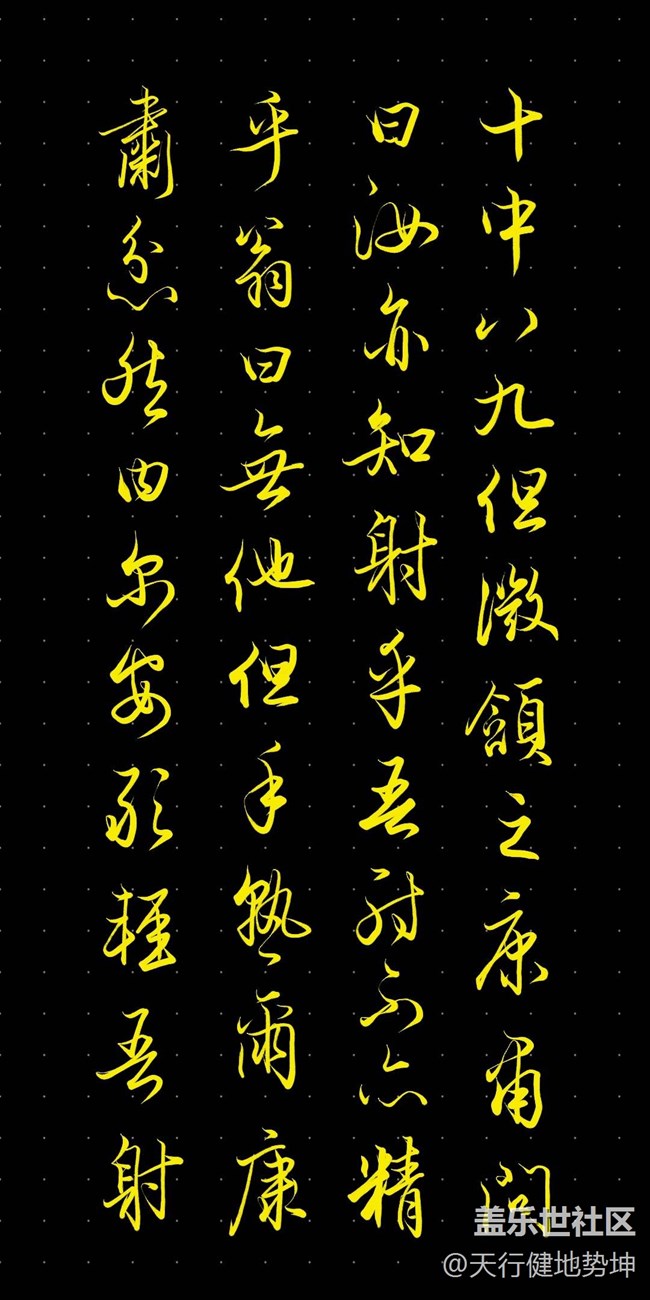 十中八九但微頷之康甫問
曰汝亦知射乎吾射不亦精
乎翁曰無他但手熟爾康
肅忿然内尔安敢輕吾射
盖乐世社区
@天行健地势坤